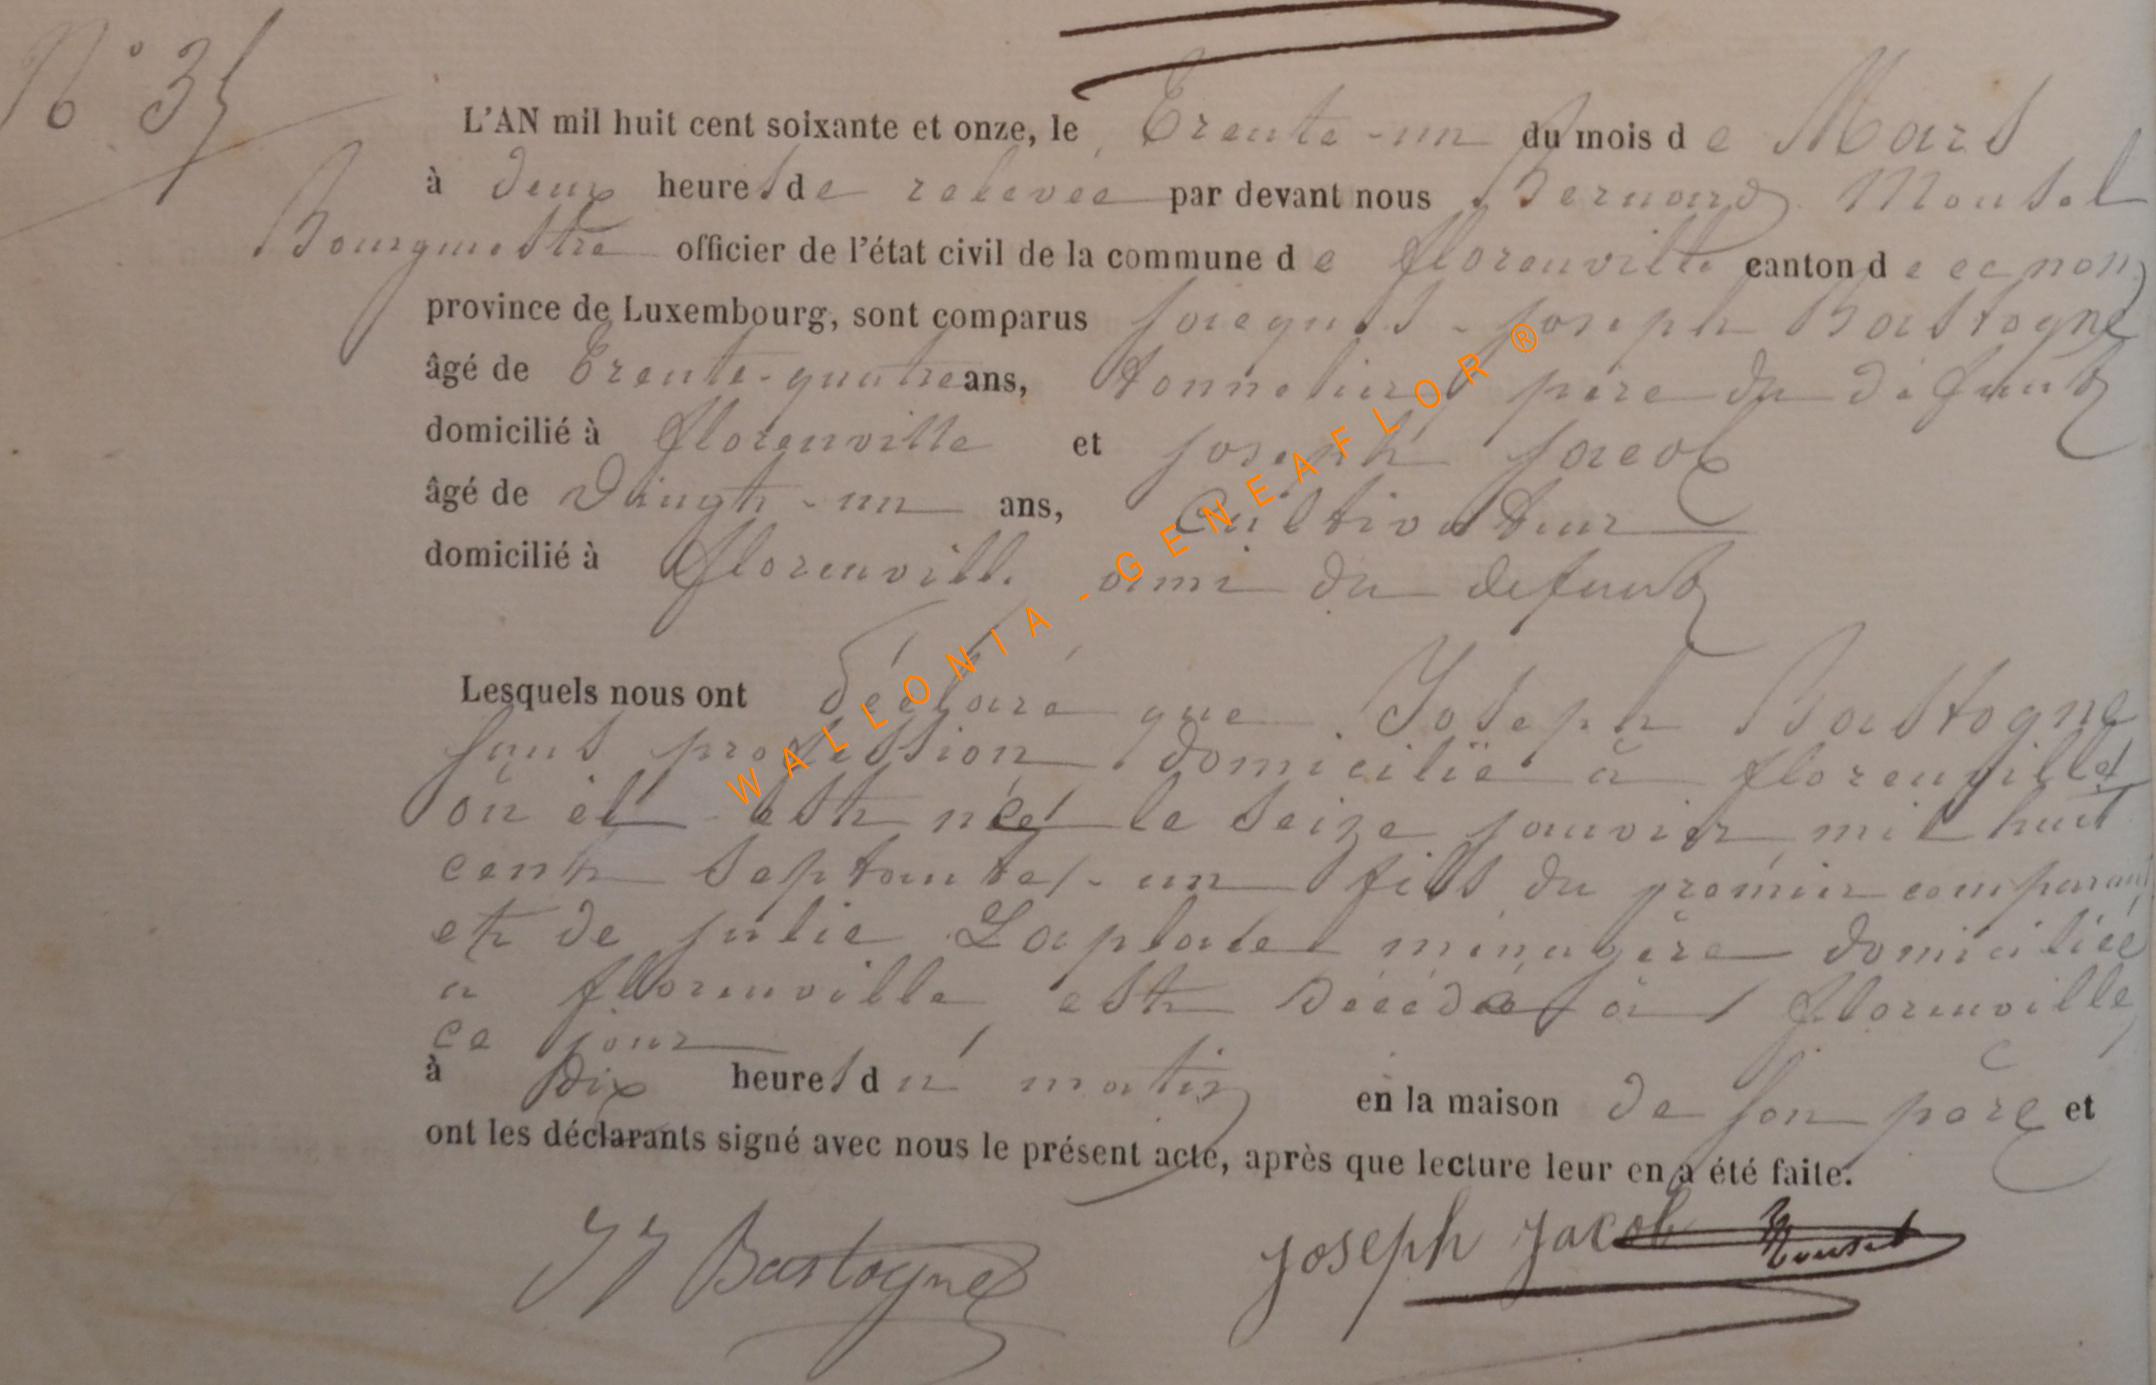 N° 35
L'AN mil huit cent soixante et onze, le Trente-un du mois de Mars
à deux heures de relevée par devant nous Bernard Mousel
Bourgmestre officier de l'état civil de la commune de florenville canton de ce nom
province de Luxembourg, sont comparus jacques-joseph Bastogne
âgé de Trente-quatre ans, tonnelier père du défunt
domicilié à florenville et joseph jacob
âgé de Vingt-un ans, Cultivateur
domicilié à florenville ami du defunt
Lesquels nous ont déclaré que Joseph Bastogne
sans profession domicilié à florenville
où il est né le seize janvier mil huit
cent septante-un fils du premier comparant
et de julie ménagère domiciliée
a florenville est décédé à florenville
ce jour
à dix heures du matin en la maison de son père et
ont les déclarants signé avec nous le présent acte, après que lecture leur en a été faite.
JJ Bastogne Joseph Jacob Mousel
WALLONIA - GENEAFLOR ®